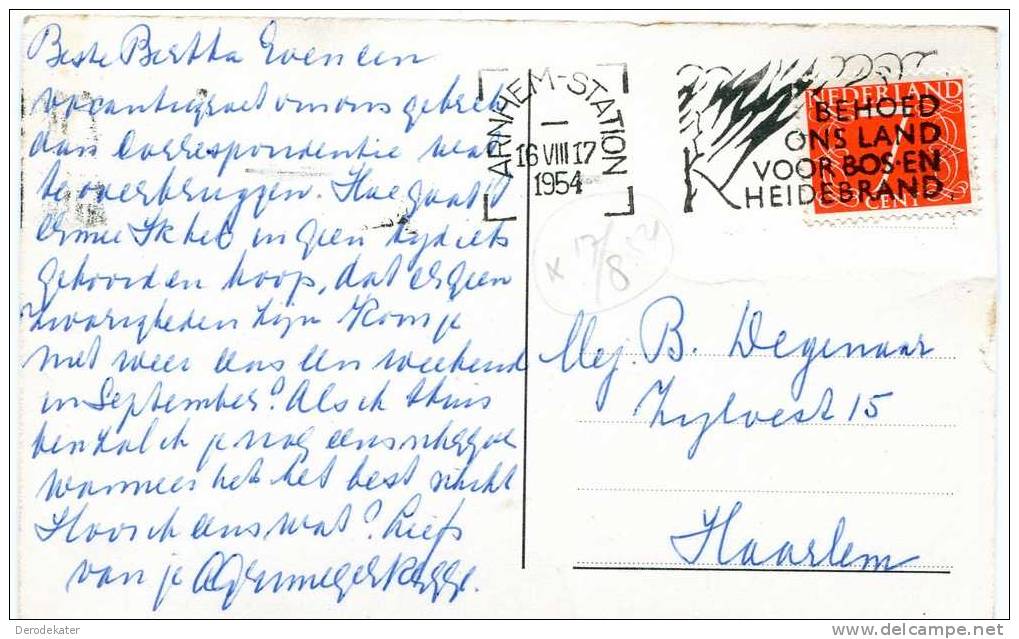 Beste Bertha Even een
vacantiegroet om ons gebrek
aan Correspondentie wat
te overbruggen. Hoe gaat 't
ermee Ik heb in geen tyd iets
gehoord en hoop, dat er geen
zwarigheden zyn Kom je
niet weer eens een weekend
in September? Als ik thuis
ben zal ik je nog eens
wanneer het het best schikt
Hoor ik eens wat? Liefs
van je
ARNHEM-STATION
16 VIII 17
1954
NEDERLAND
7
CENT
BEHOED
ONS LAND
VOOR BOS-EN
HEIDEBRAND.
x 17/8 '54
Mej. B. Degenaar
Zylvest 15
Haarlem
Derodekater
www.delcampe.net